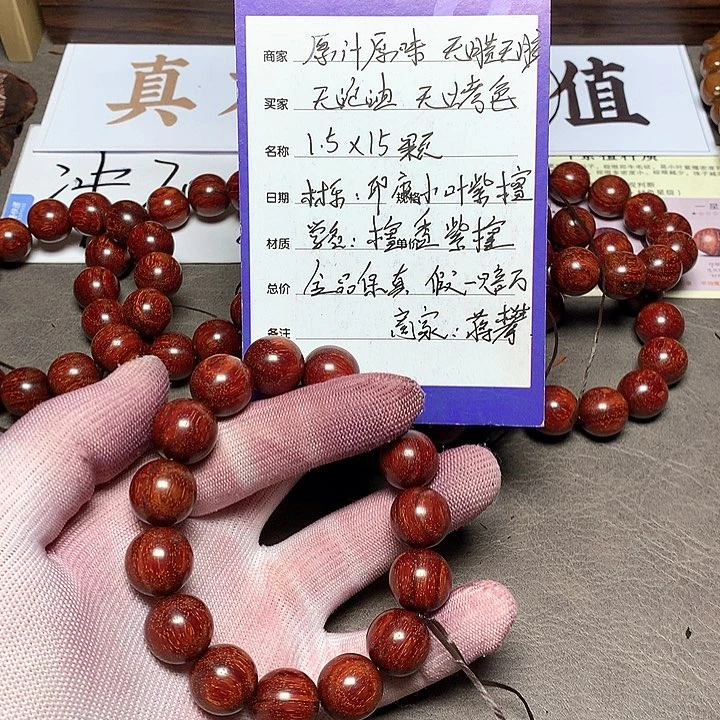 真 值
商家 原汁原味 无腊无胶
买家 无泡油 无烤色
名称 1.5×15颗
日期 材东:印度小叶紫檀
规格
材质 学名:檀香紫檀
单价
总价 全品保真 假一赔万
备注 商家:蒋攀